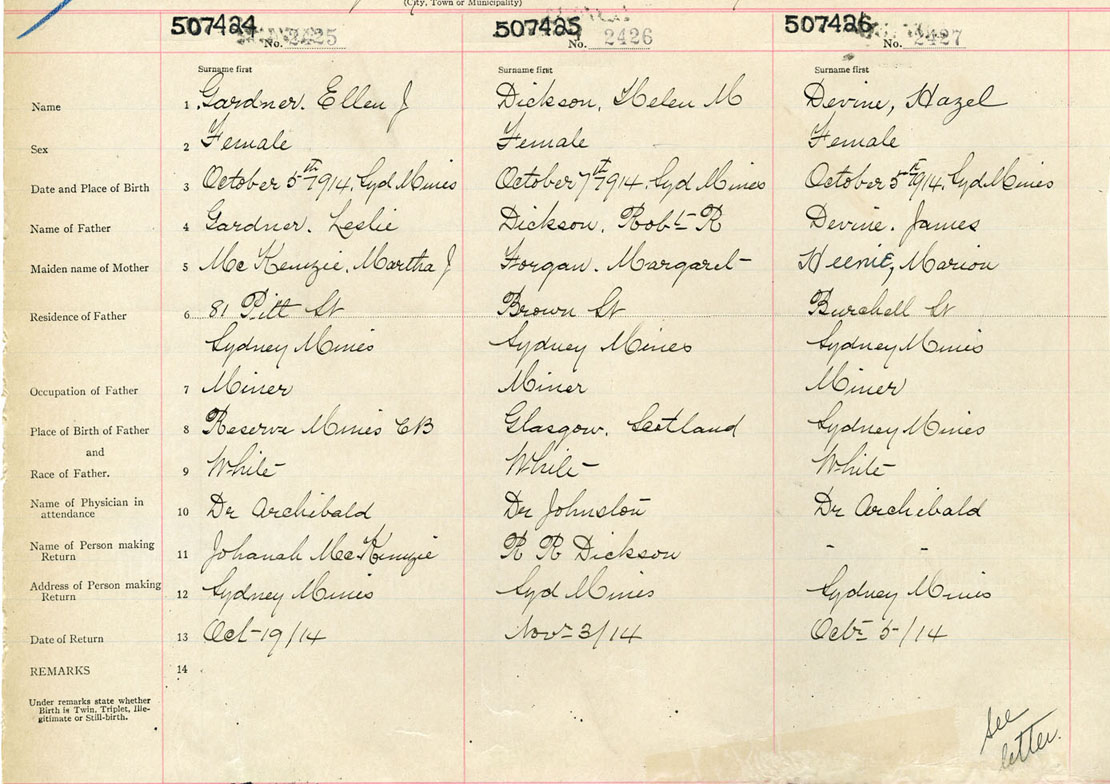 (City, Town or Municipality)
507424 507425 507426
No. 2425 No. 2426 No. 2427
Surname first Surname first Surname first
Name 1 Gardner. Ellen J Dickson, Helen M Devine, Hazel
Sex 2 Female Female Female
Date and Place of Birth 3 October 5th 1914. Syd Mines October 7th 1914. Syd Mines October 5th 1914. Syd Mines
Name of Father 4 Gardner. Leslie Dickson. Robt R Devine. James
Maiden name of Mother 5 McKenzie. Martha J Forgan. Margaret Heenie, Marion
Residence of Father 6 81 Pitt St Brown St Burchell St
Sydney Mines Sydney Mines Sydney Mines
Occupation of Father 7 Miner Miner Miner
Place of Birth of Father 8 Reserve Mines CB Glasgow. Scotland Sydney Mines
and
Race of Father. 9 White White White
Name of Physician in
attendance 10 Dr Archibald Dr Johnston Dr Archibald
Name of Person making
Return 11 Johanah McKenzie R R Dickson - -
Address of Person making
Return 12 Sydney Mines Syd Mines Sydney Mines
Date of Return 13 Oct-19/14 Nov- 3/14 Octr 5-/14
REMARKS 14
Under remarks state whether
Birth is Twin, Triplet, Ille-
gitimate or Still-birth.
See
letter.